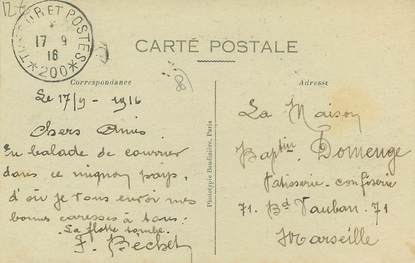 12f
TRÉSOR ET POSTES
17 9
16
*200*
CARTE POSTALE
Correspondance
Adresse
Le 17/9 - 1916
Chers Amis
En balade de courrier
dans ce mignon pays,
d'où je vous envoie mes
bonnes caresses à tous.
La flotte tombe.
F. Béchet
Phototypie Baudinière, Paris
La Maison
Baptin Domenge
Patisserie - confiserie
71. Bd Vauban. 71
Marseille